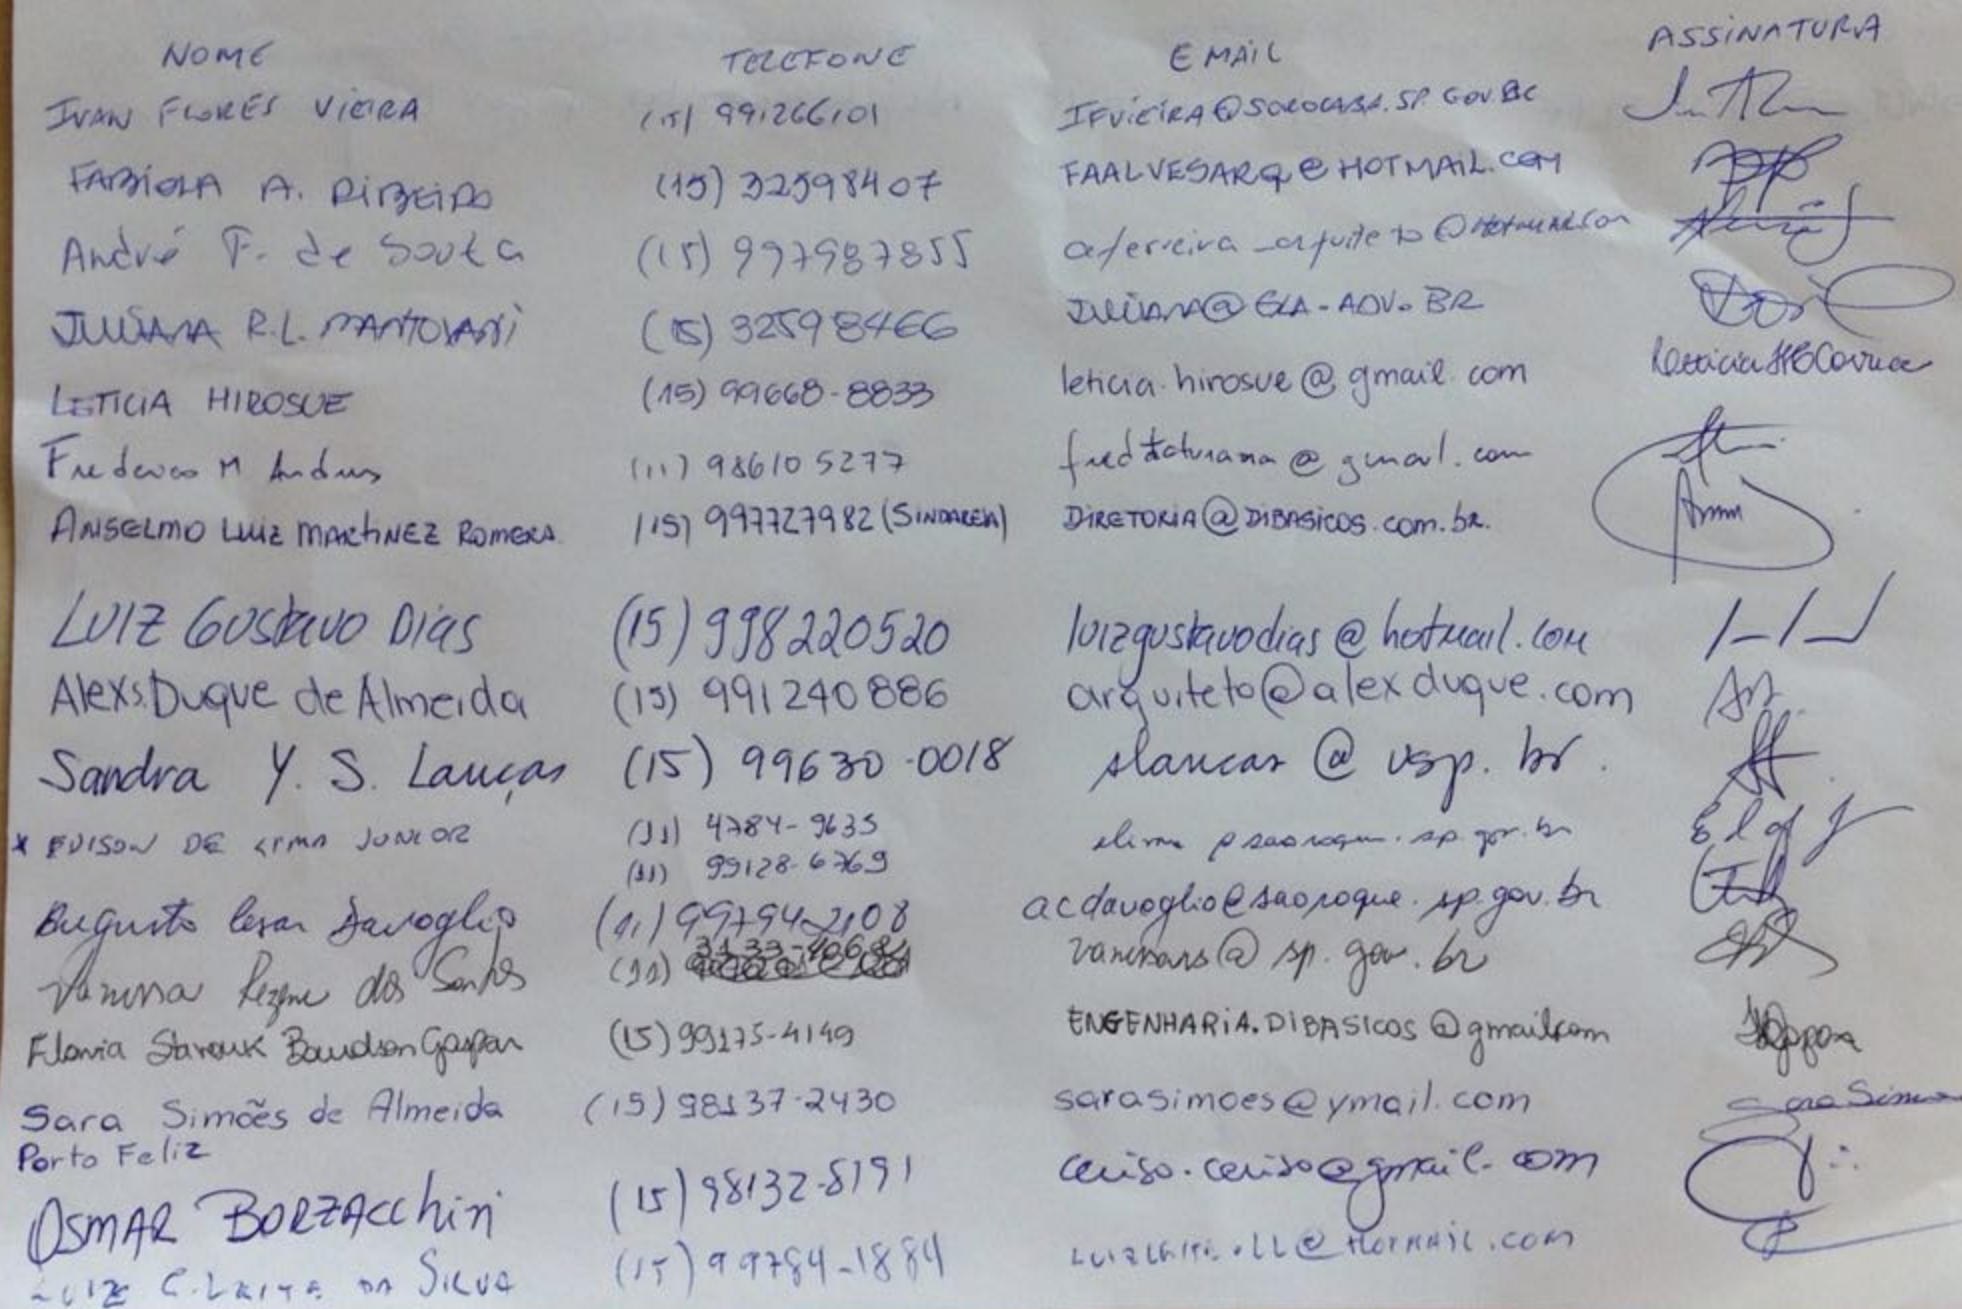 NOME TELEFONE EMAIL ASSINATURA
IVAN FLORES VIEIRA (15) 991266101 IFVIEIRA@SOROCABA.SP.GOV.BR
FABIOLA A. RIBEIRO (15) 32598407 FAALVESARQ@HOTMAIL.COM
André F. de Souza (15) 997987855 aferreira_arquiteto@Hotmail.com
JULIANA R.L. MANTOVANI (15) 32598466 JULIANA@GLA-ADV.BR
LETICIA HIROSUE (15) 99668-8833 leticia.hirosue@gmail.com
Frederico M Andres (11) 986105277 @gmail.com
ANSELMO LUIZ MARTINEZ ROMERA (15) 997727982 (SINDAREIA) DIRETORIA@DIBASICOS.com.br.
LUIZ GUSTAVO DIAS (15) 998220520 luizgustavodias@hotmail.com
Alexs.Duque de Almeida (15) 991240886 arquiteto@alexduque.com
Sandra Y. S. Lanças (15) 99630-0018 slancas@usp.br.
* EDISON DE LIMA JUNIOR (11) 4784-9635 elima@saoroque.sp.gov.br
(11) 99128-6769
Augusto Cesar Davoglio (11) 99794-2108 acdavoglio@saoroque.sp.gov.br
Vanessa dos Santos (11) 3133-4068 @sp.gov.br
Flavia Gaspar (15) 99175-4149 ENGENHARIA.DIBASICOS@gmail.com
Sara Simões de Almeida (15) 98137-2430 sarasimoes@ymail.com Sara Simões
Porto Feliz
OSMAR BORZACChini (15) 98132-8191 ceriso.ceriso@gmail.com
LUIZ C. LEITE DA SILVA (15) 99784-1884 LUIZLEITE.LL@HOTMAIL.COM